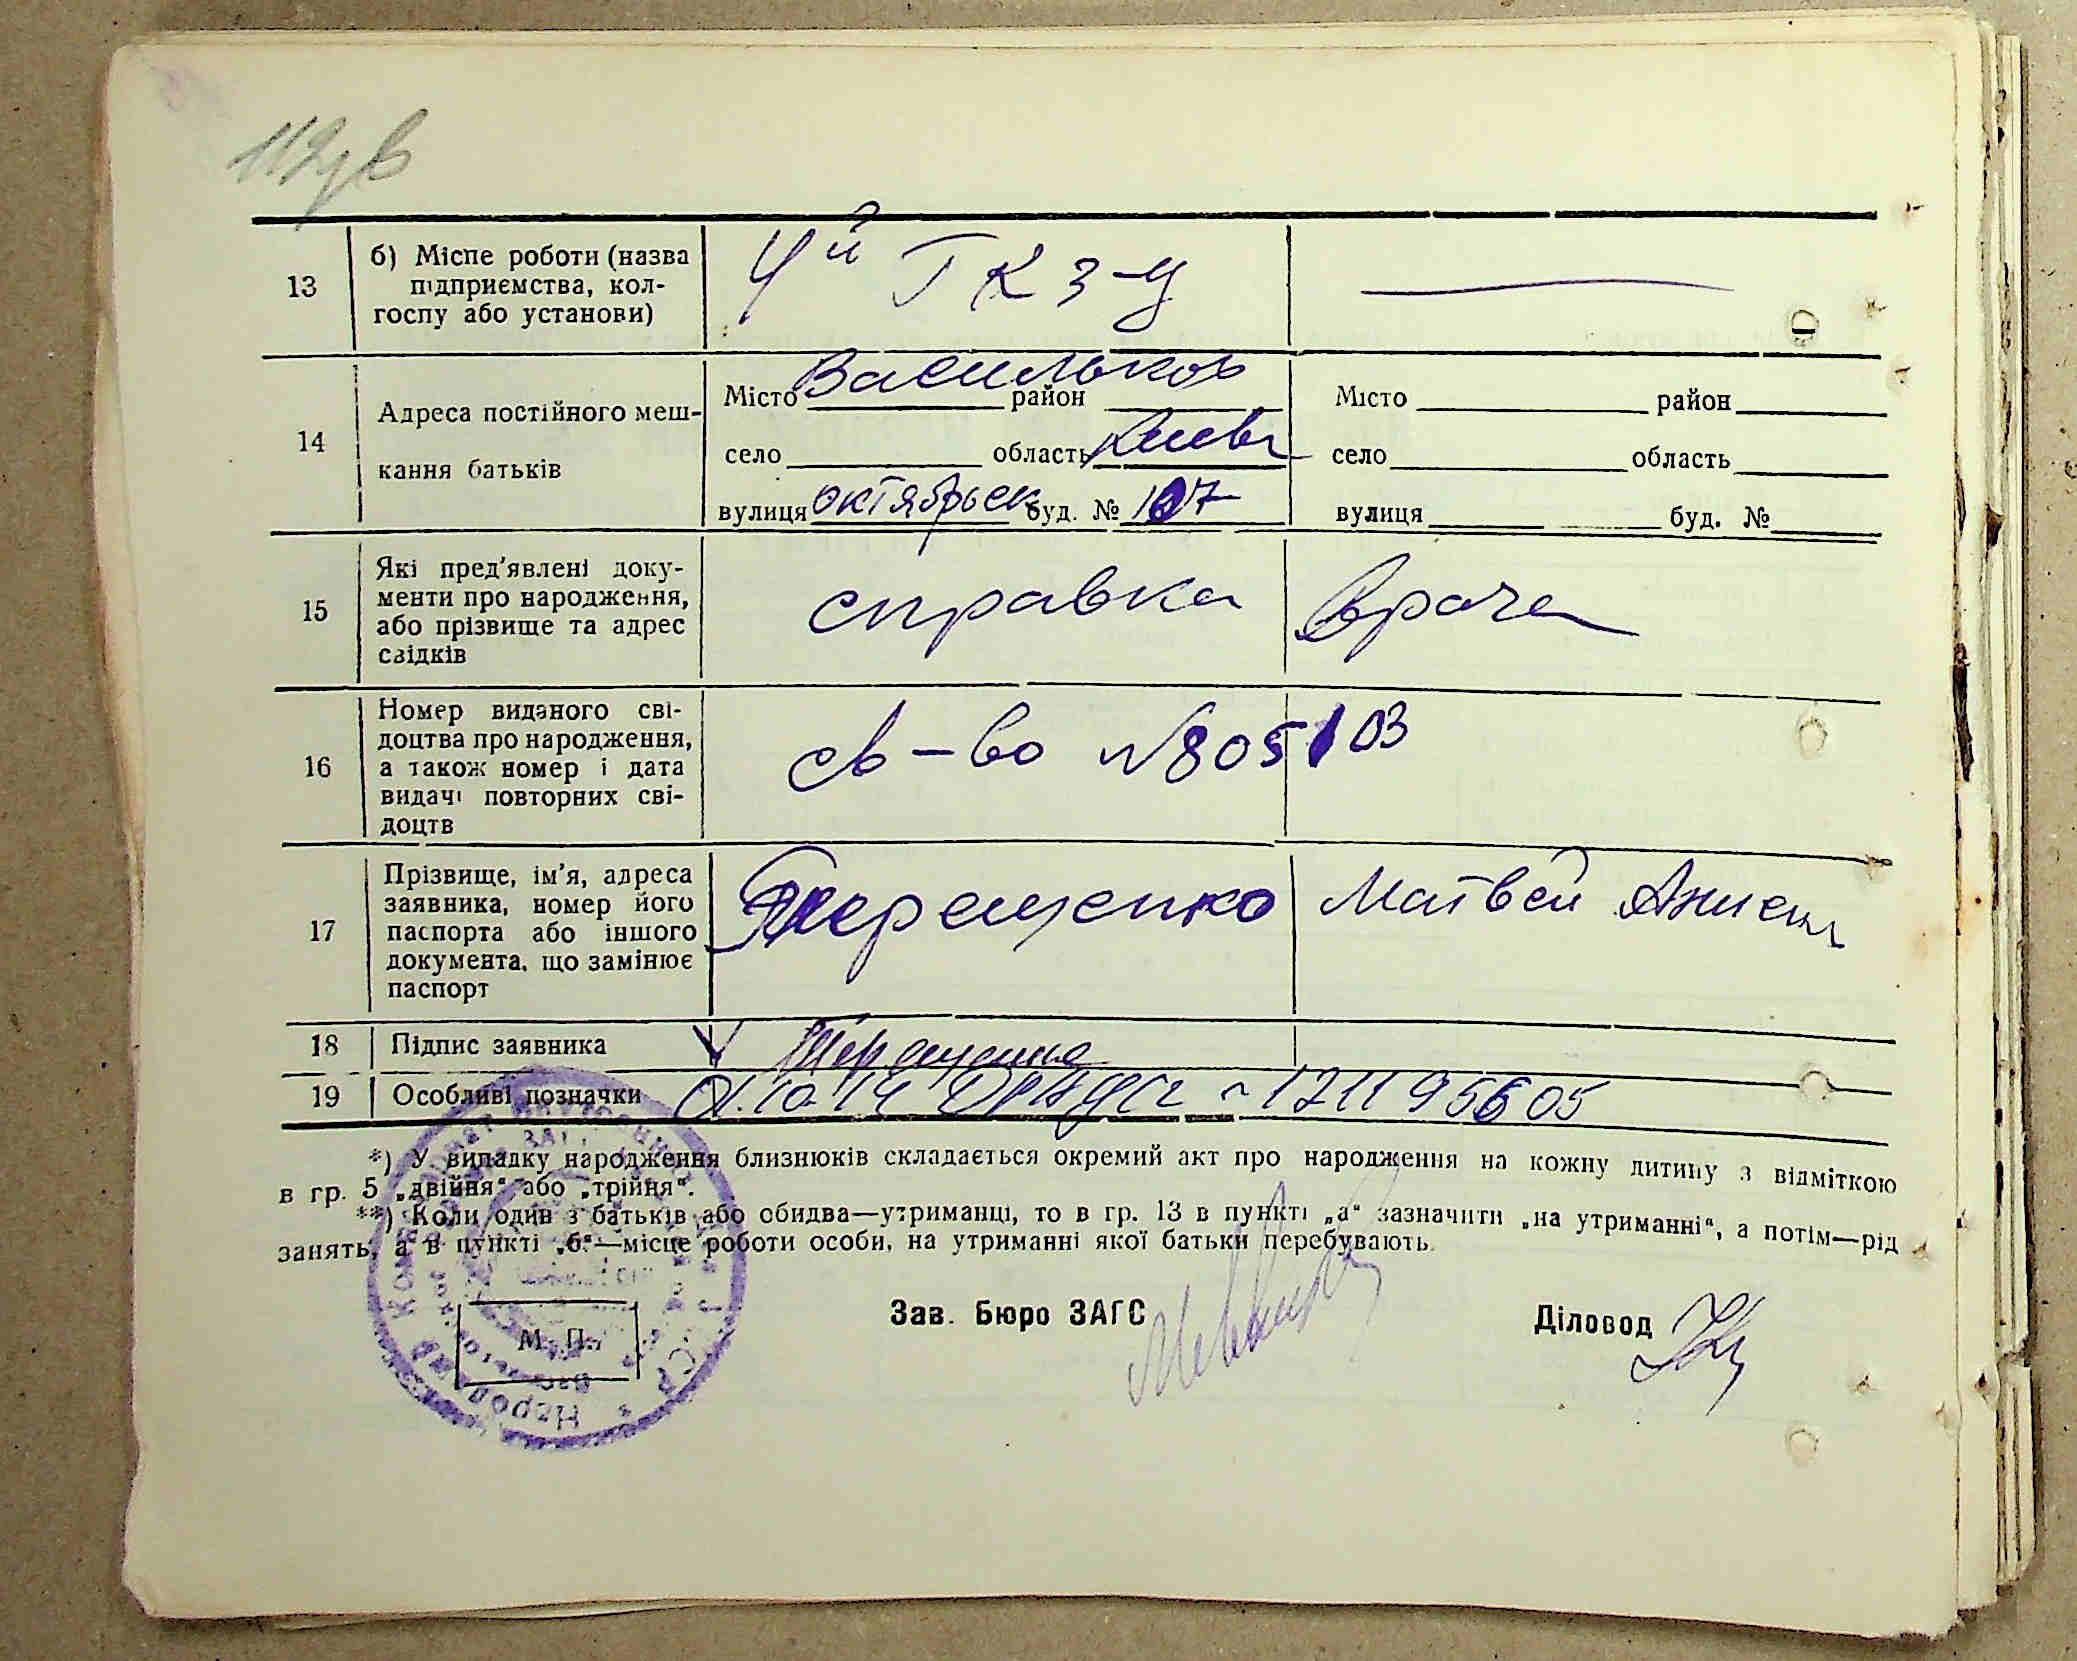 113 зв
13
б) Місце роботи (назва
підприємства, кол-
госпу або установи)
4й ГКЗ-д
14
Адреса постійного меш-
кання батьків
Місто Васильков район
село область Киевс
вулиця октябрьск буд. № 107
Місто район
село область
вулиця буд. №
15
Які пред'явлені доку-
менти про народження,
або прізвище та адрес
свідків
справка врача
16
Номер виданого сві-
доцтва про народження,
а також номер і дата
видачі повторних сві-
доцтв
св-во №805103
17
Прізвище, ім'я, адреса
заявника, номер його
паспорта або іншого
документа, що замінює
паспорт
Терещенко Матвей
18
Підпис заявника
Терещенко
19
Особливі позначки
01.10.14 171195605
*) У випадку народження близнюків складається окремий акт про народження на кожну дитину з відміткою
в гр. 5 „двійня“ або „трійня“.
**) Коли один з батьків або обидва—утриманці, то в гр. 13 в пункті „а“ зазначити „на утриманні“, а потім—рід
занять, а в пункті „б“—місце роботи особи, на утриманні якої батьки перебувають.
Зав. Бюро ЗАГС
Діловод
М. П.